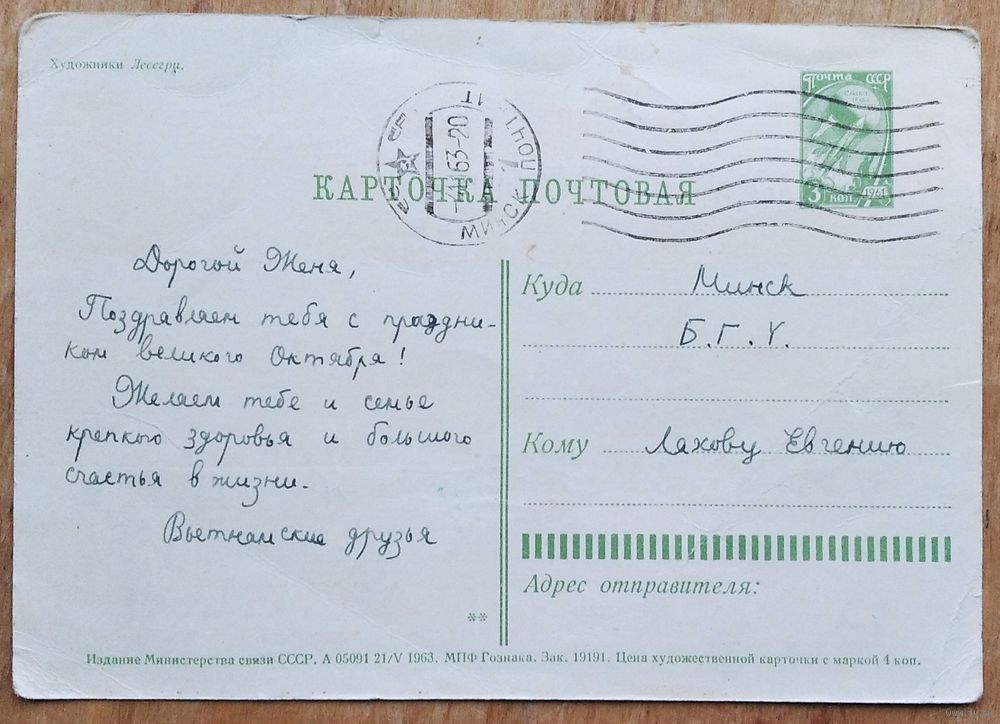 Художники Лесегри.
Почта СССР
3 коп 1961
МИНСК ПОЧТ
63-20
КАРТОЧКА ПОЧТОВАЯ
Дорогой Женя,
Поздравляем тебя с праздни-
ком великого Октября!
Желаем тебе и семье
крепкого здоровья и большого
счастья в жизни.
Вьетнамские друзья
**
Куда Минск
Б.Г.У.
Кому Ляхову Евгению
Адрес отправителя:
Издание Министерства связи СССР. А 05091 21/V 1963. МПФ Гознака. Зак. 19191. Цена художественной карточки с маркой 4 коп.